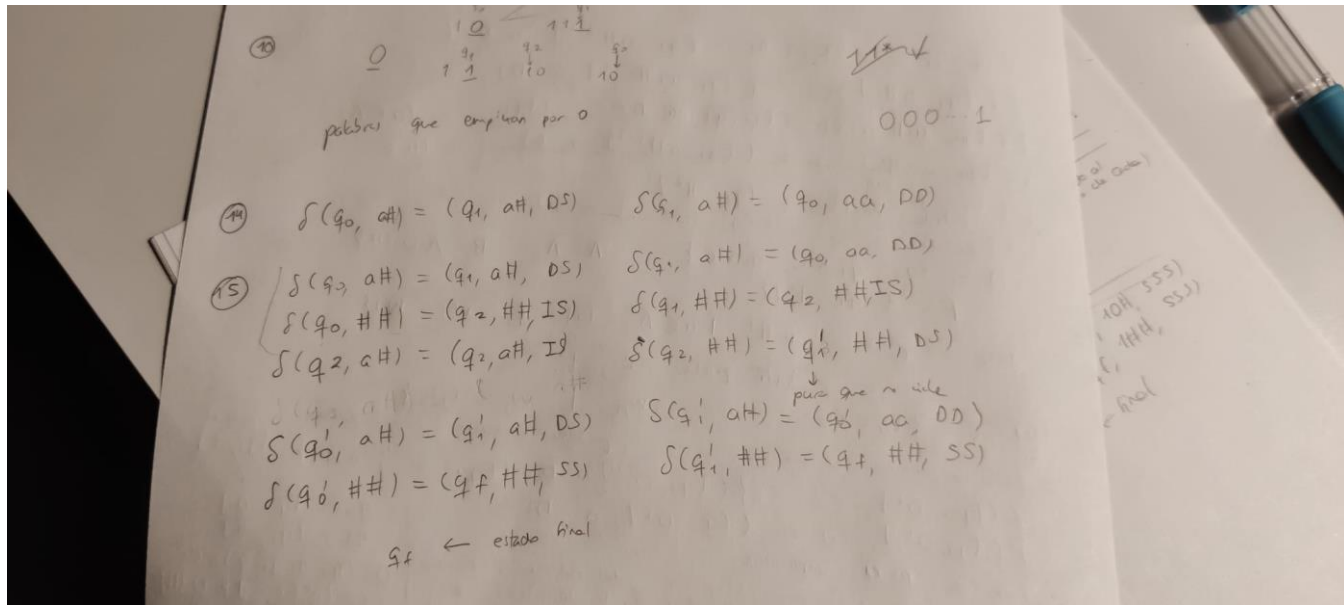 1 0 1 1 1
q1 q2 q0
10 0 1 1 10 10
palabras que empiezan por 0 000...1
14 δ(q0, a#) = (q1, a#, DS) δ(q1, a#) = (q0, aa, DD)
15 δ(q0, a#) = (q1, a#, DS) δ(q1, a#) = (q0, aa, DD)
δ(q0, ##) = (q2, ##, IS) δ(q1, ##) = (q2, ##, IS)
δ(q2, a#) = (q2, a#, IS δ(q2, ##) = (q'1, ##, DS)
↓
para que no cicle
δ(q'0, a#) = (q'1, a#, DS) δ(q'1, a#) = (q'0, aa, DD)
δ(q'0, ##) = (qf, ##, SS) δ(q'1, ##) = (qf, ##, SS)
qf ← estado final
10#, SSS)
1##, SSS)
← final